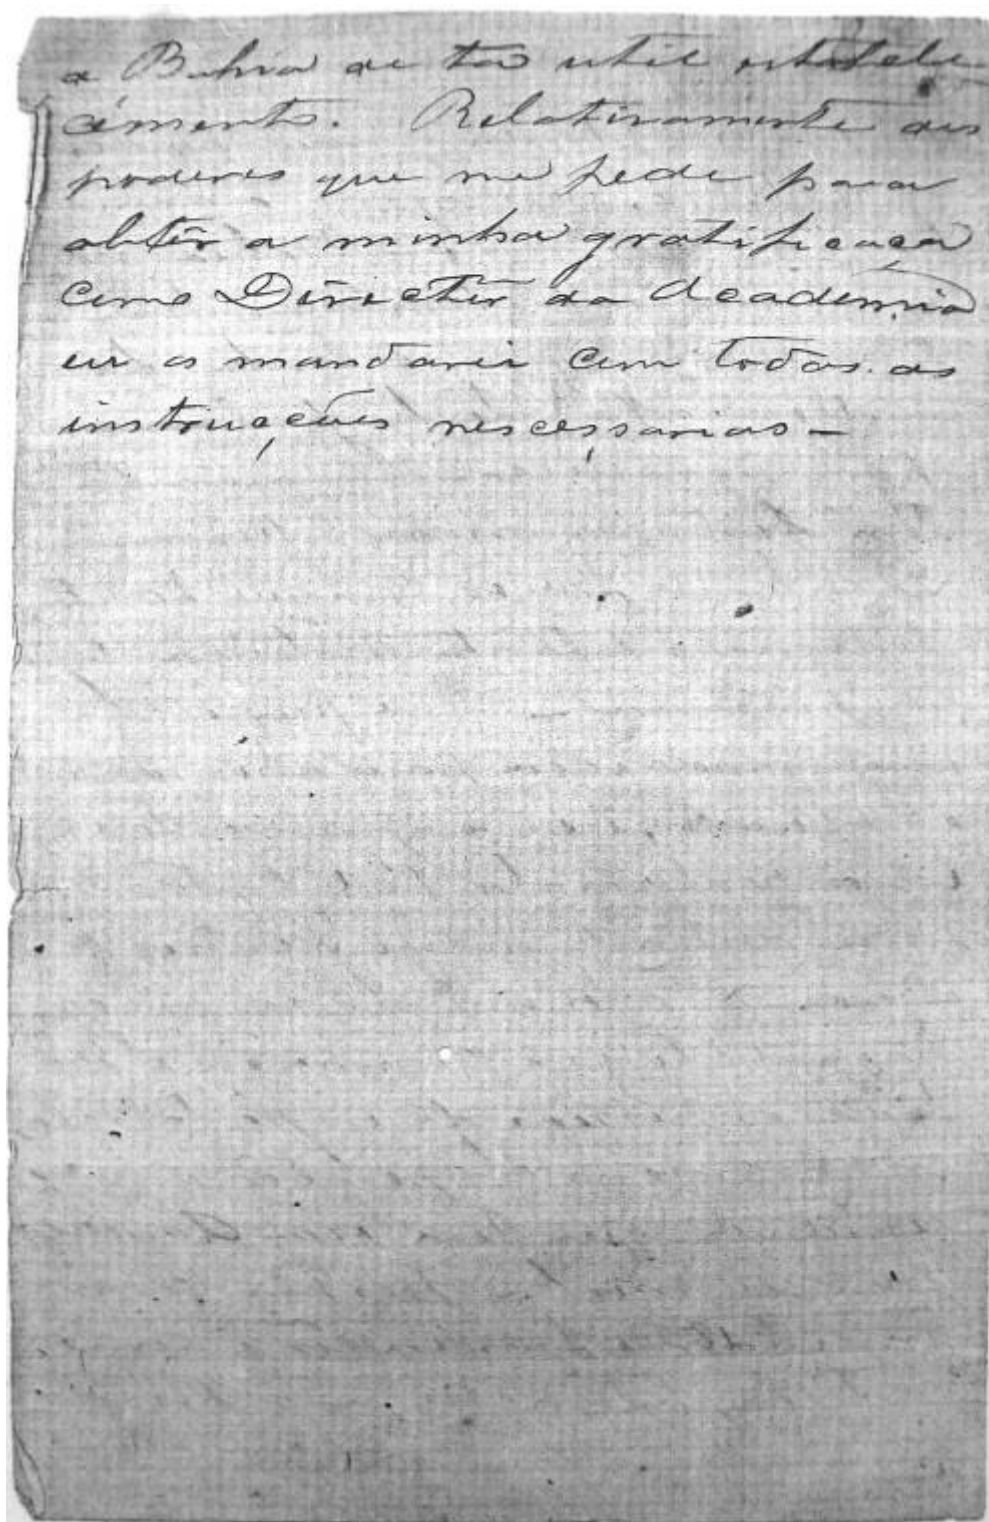 a Bahia de tão util estabele
cimento. Relativamente aos
poderes que me pede para
obtêr a minha gratificação
como Directôr da Academia
eu os mandarei com todas as
instrucções nescessarias –